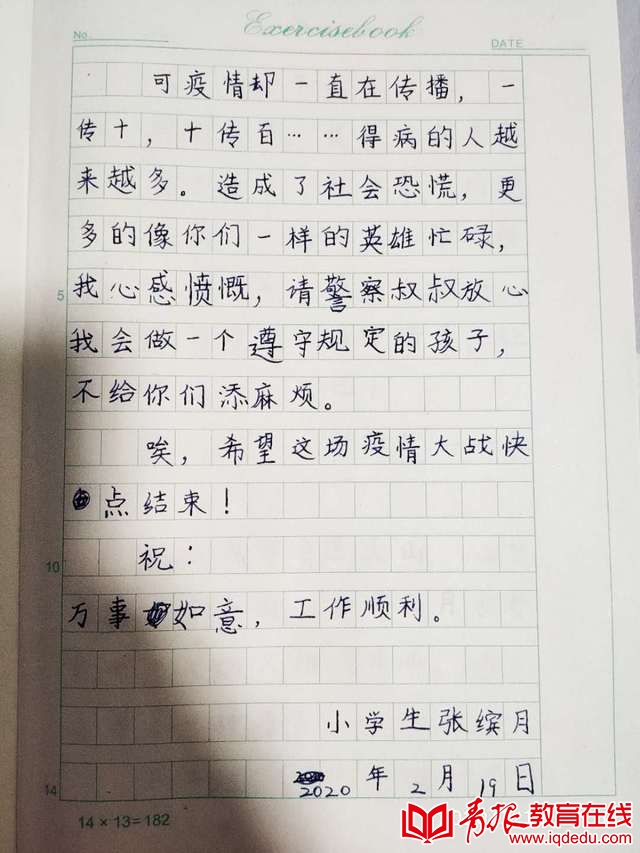 Exercisebook
No.
DATE
可疫情却一直在传播，一
传十，十传百……得病的人越
来越多。造成了社会恐慌，更
多的像你们一样的英雄忙碌，
5
我心感愤慨，请警察叔叔放心
我会做一个遵守规定的孩子，
不给你们添麻烦。
唉，希望这场疫情大战快
点结束！
10
祝：
万事如意，工作顺利。
小学生张缤月
14
2020年2月19日
14×13=182
青报教育在线
www.iqdedu.com